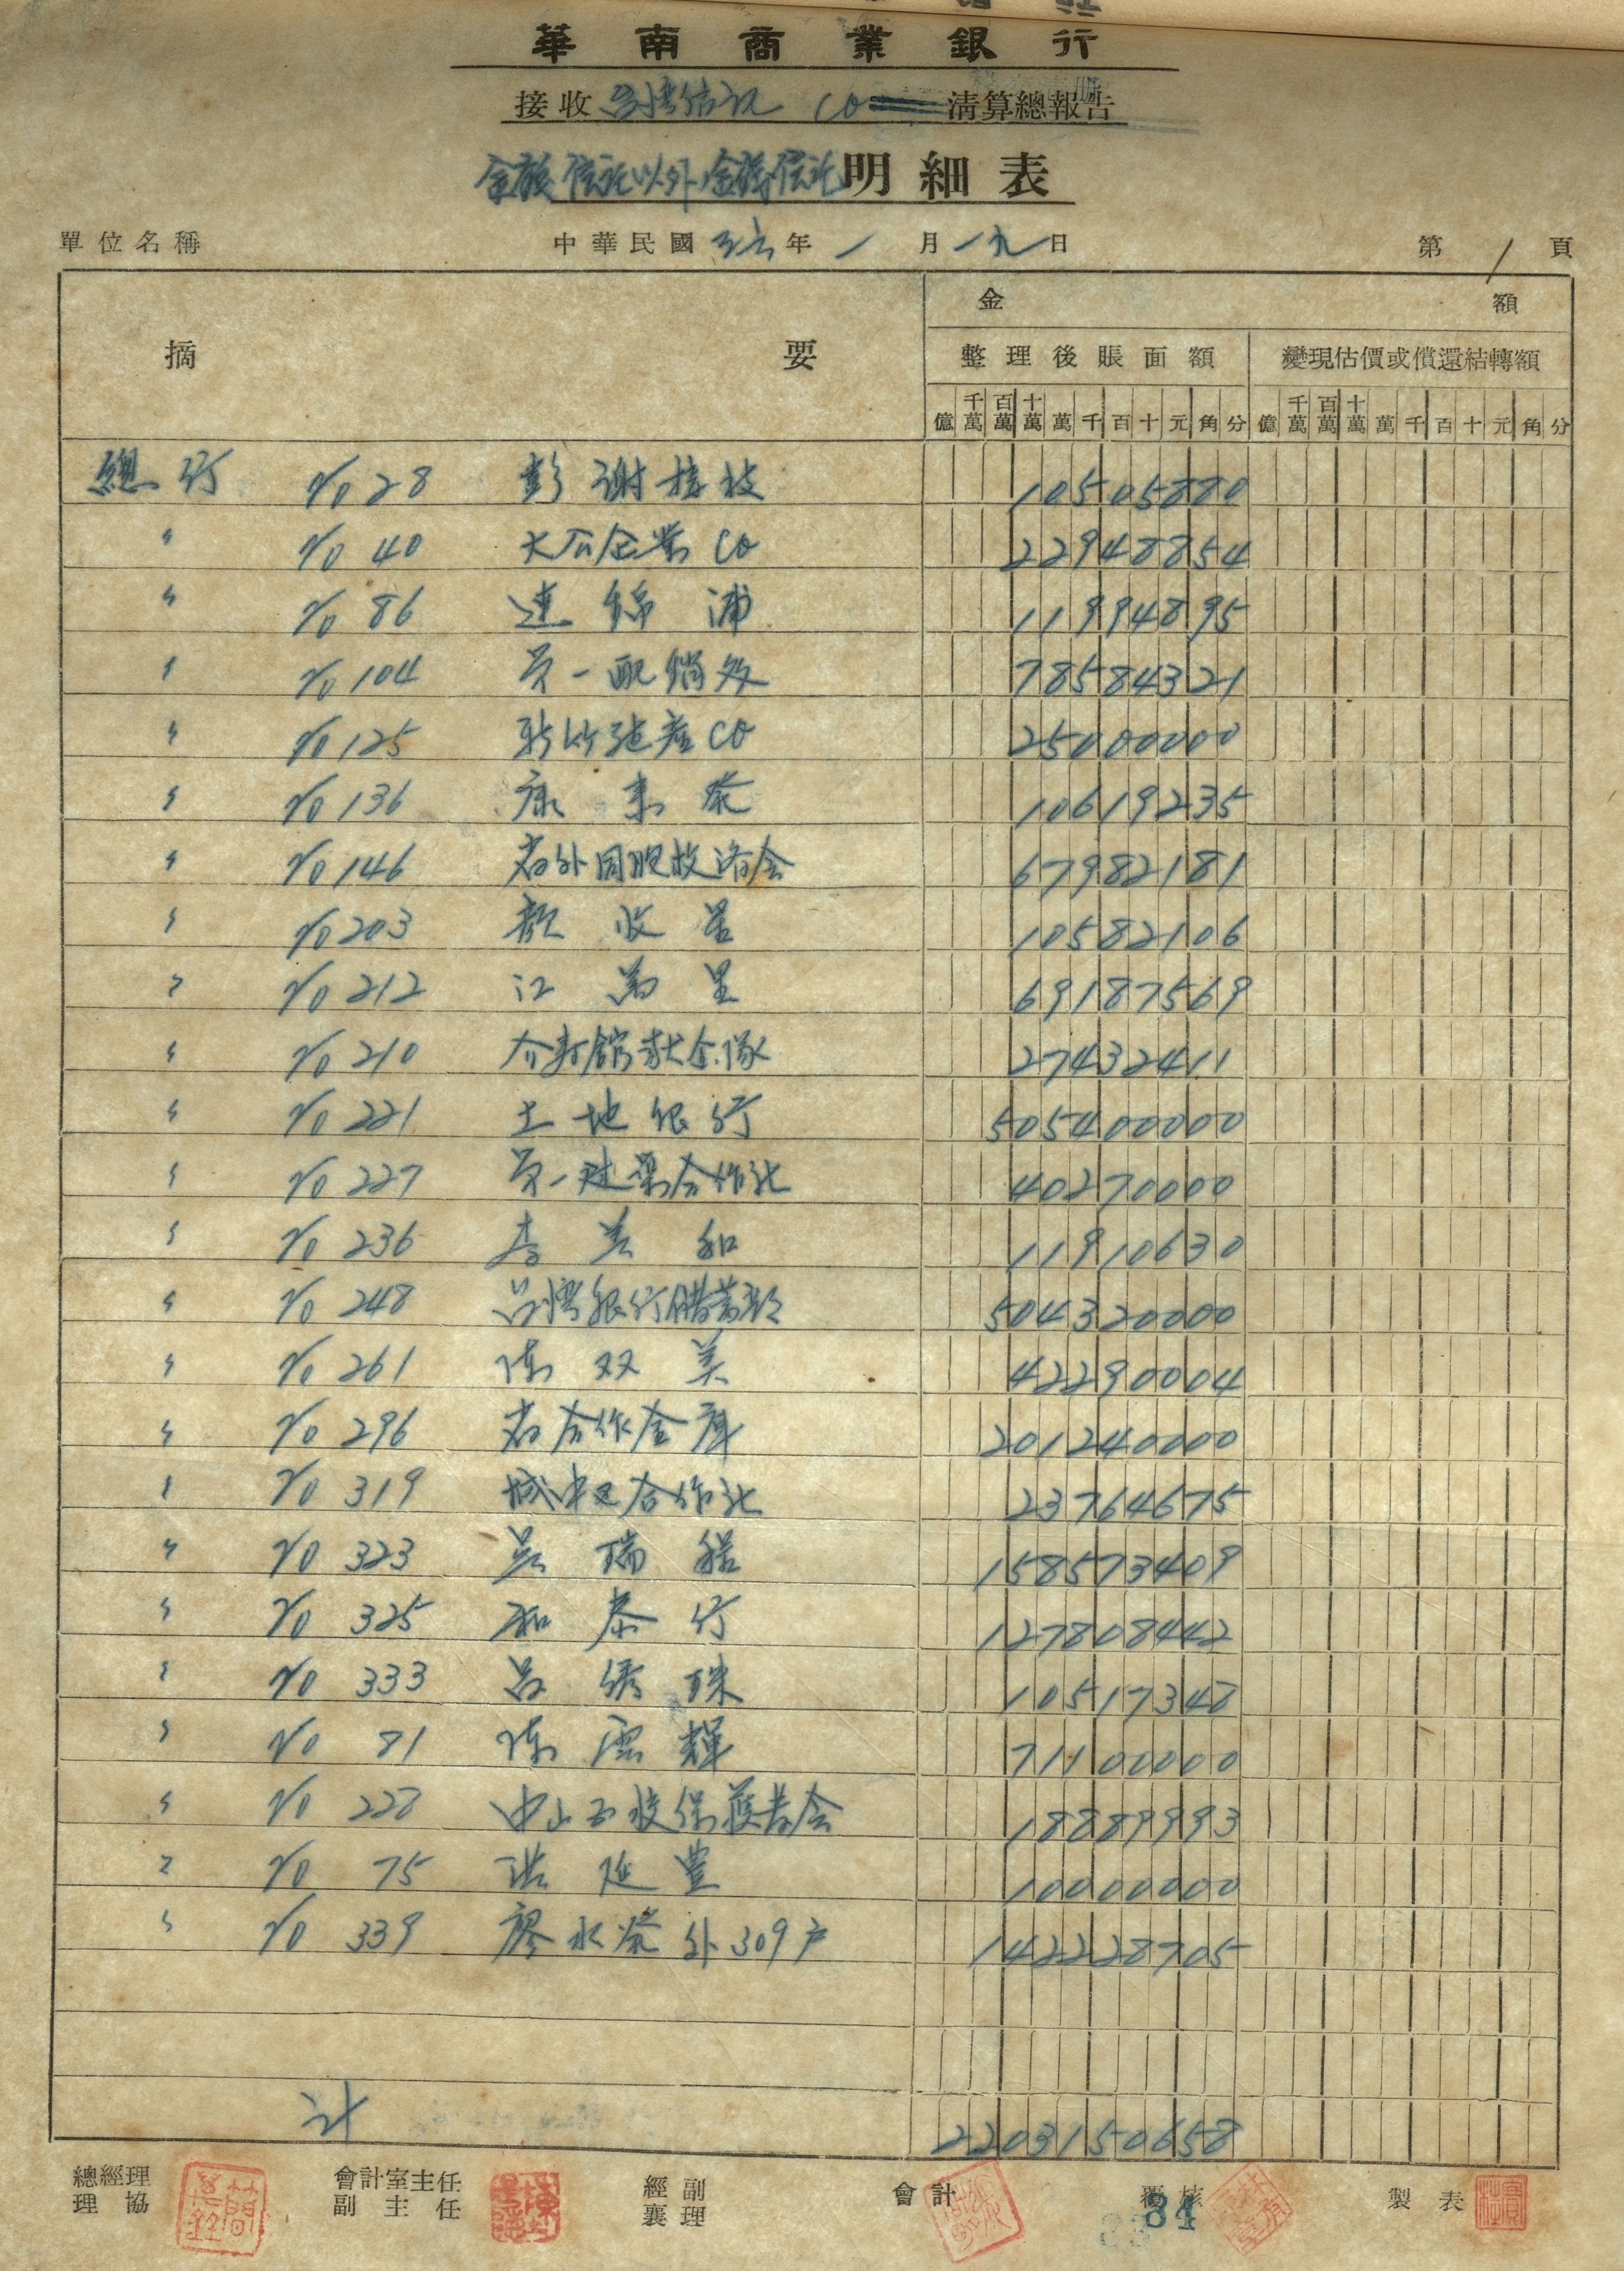 華南商業銀行
接收台灣信託 Co 清算總報告
金錢信託以外,金錢信託明細表
單位名稱 中華民國三六年一月一九日 第1頁
摘要 金額
整理後賬面額 變現估價或償還結轉額
億 千萬 百萬 十萬 萬 千 百 十 元 角 分 億 千萬 百萬 十萬 萬 千 百 十 元 角 分
總行 No 28 彭謝接枝 10505880
〃 No 40 大公企業Co 22948854
〃 No 86 連錦浦 11994895
〃 No 104 第一配銷處 78584321
〃 No 125 新竹建產Co 25000000
〃 No 136 康 10619235
〃 No 146 67982181
〃 No 203 顏 10582106
〃 No 212 江萬里 69187569
〃 No 210 介壽館獻金隊 27432411
〃 No 221 土地銀行 505400000
〃 No 227 第一建築合作社 40270000
〃 No 236 李 和 11910630
〃 No 248 台灣銀行儲蓄部 504320000
〃 No 261 陳双美 42290004
〃 No 296 省合作金庫 201240000
〃 No 319 城中區合作社 23764675
〃 No 323 吳瑞 158573409
〃 No 325 和泰行 127808442
〃 No 333 呂綉珠 10517348
〃 No 81 陳雲輝 71100000
〃 No 228 中山 校保護者會 18889993
〃 No 75 洪延豐 10000000
〃 No 339 廖水 外309戶 142228705
計 2203150658
總經理 會計室主任 經副 會計 覆核 製表
理協 副主任 襄理
84